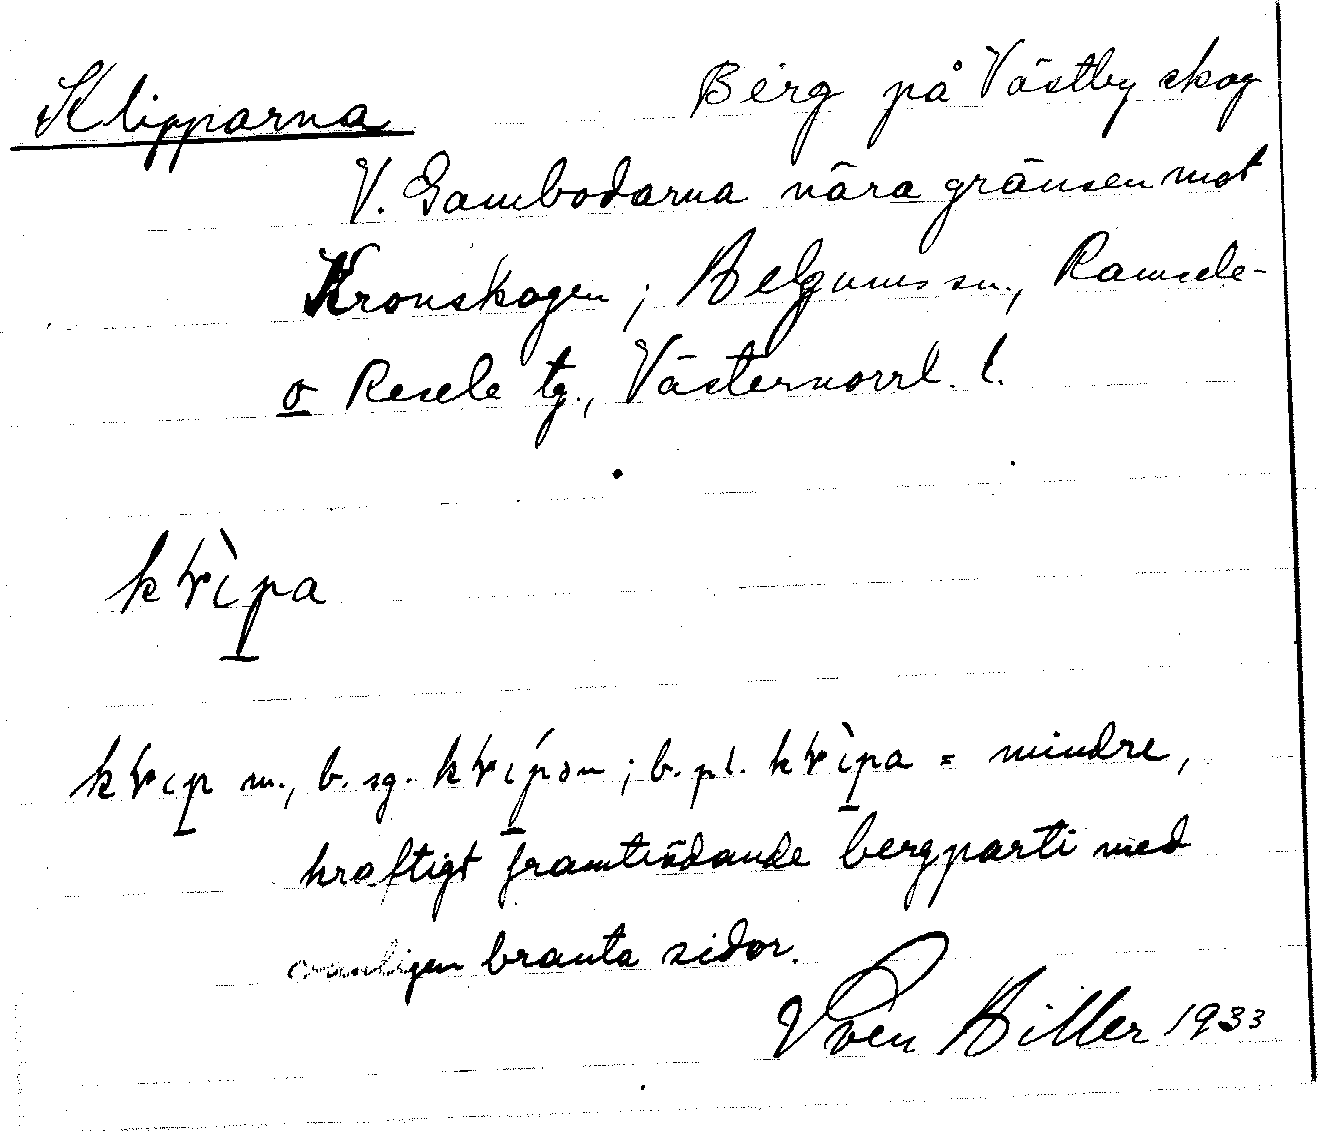 Klipparna Berg på Västby skog
V. Gambodarna nära gränsen mot
Kronskogen; Helgums sn., Ramsele-
o Resele tg., Västernorrl. l.
kɽìpa
kɽɩp m., b. sg. kɽípən; b. pl. kɽìpa = mindre,
kraftigt framträdande bergparti med
ovanligen branta sidor.
Sven Hiller 1933